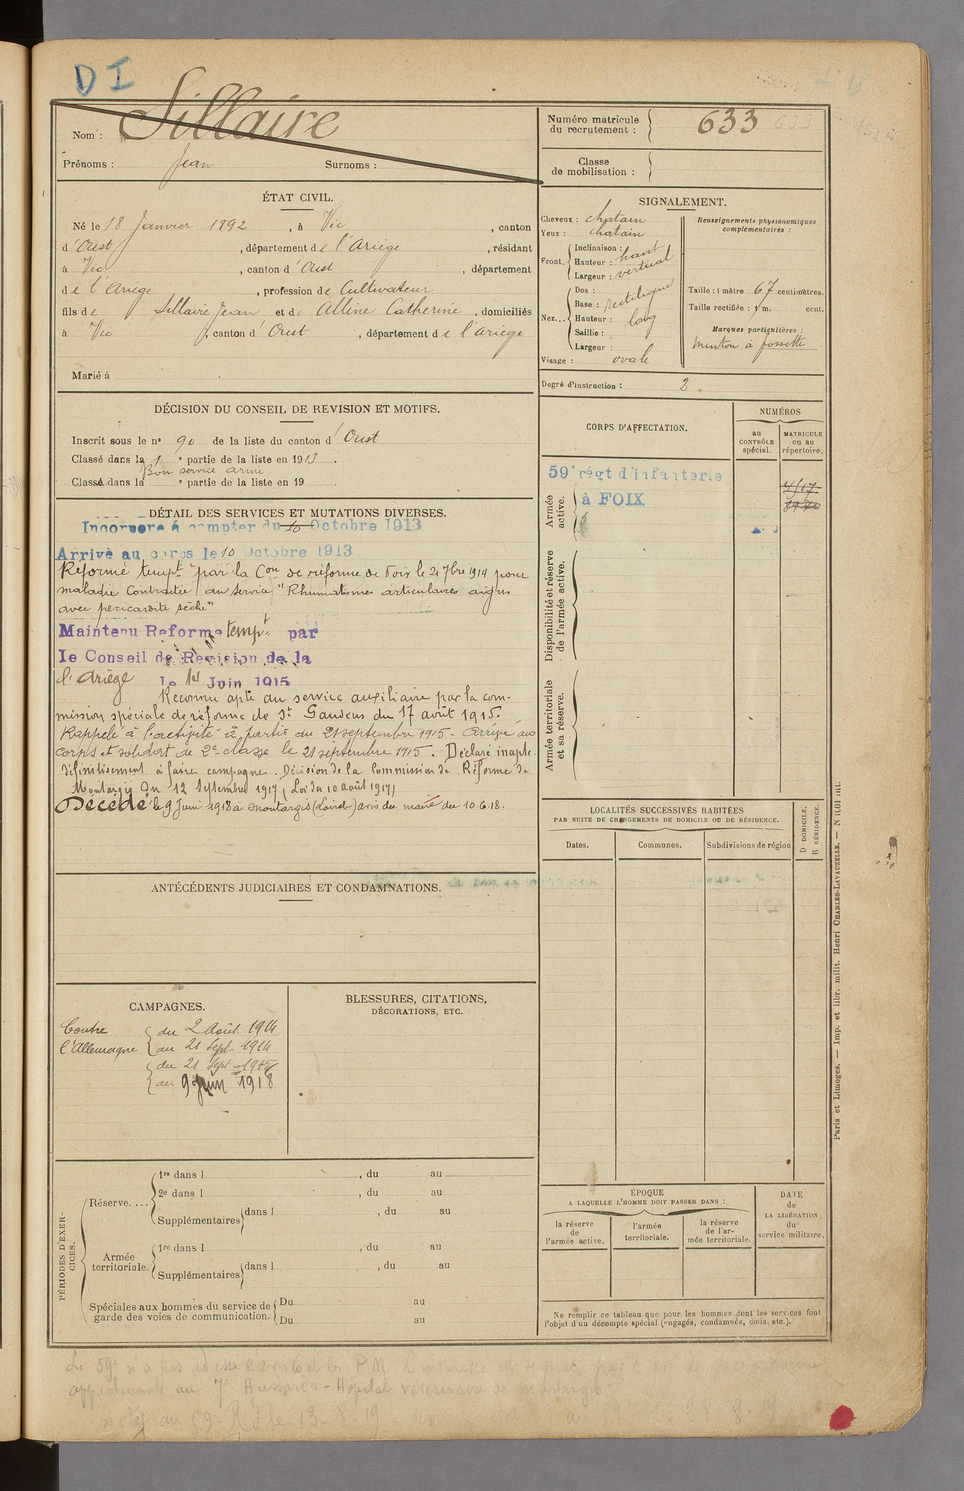 DI
Nom : Sillaire
Prénoms : Jean Surnoms :
Numéro matricule
du recrutement : 633 633
Classe
de mobilisation :
ÉTAT CIVIL.
Né le 18 Janvier 1892, à Vic, canton
d'Oust, département de l'Ariège, résidant
à Vic, canton d'Oust, département
de l'Ariège, profession de Cultivateur
fils de Sillaire Jean et d Albine Catherine, domiciliés
à Vic, canton d'Oust, département de l'Ariège
Marié à
SIGNALEMENT.
Cheveux : chatain
Yeux : chatain
Front. Inclinaison :
Hauteur : haut
Largeur : vertical
Nez... Dos :
Base : rectiligne
Hauteur : long
Saillie :
Largeur :
Visage : ovale
Renseignements physionomiques
complémentaires :
Taille : 1 mètre 67 centimètres.
Taille rectifiée : 1 m. cent.
Marques particulières :
menton à fossette
Degré d'instruction : 2.
DÉCISION DU CONSEIL DE REVISION ET MOTIFS.
Inscrit sous le n° 90 de la liste du canton d'Oust
Classé dans la 1e partie de la liste en 1913.
Bon service armé
Classé dans la e partie de la liste en 19
CORPS D'AFFECTATION.
NUMÉROS
au
CONTRÔLE
spécial.
MATRICULE
ou au
répertoire.
Armée
active.
59e régt d'infanterie
à FOIX
Disponibilité et réserve
de l'armée active.
Armée territoriale
et sa réserve.
DÉTAIL DES SERVICES ET MUTATIONS DIVERSES.
Incorporé à compter du 10 Octobre 1913
Arrivé au corps le 10 Octobre 1913
Réformé tempt par la Con de réforme de Foix le 21 7bre 1914 pour
maladie contractée au service "Rhumatismes articulaires aigus
avec péricardite sèche"
Maintenu Réformé tempt par
le Conseil de Révision de la
l'Ariège le 1er Juin 1915
Reconnu apte au service auxiliaire par la com-
mission spéciale de réforme de St Gaudens du 17 août 1915.
Rappelé à l'activité à partir du 21 septembre 1915. Arrivé au
corps et soldat de 2e classe le 21 septembre 1915. Déclaré inapte
définitivement à faire campagne. Décision de la Commission de Réforme de
Montargis du 12 septembre 1917 (Loi du 10 août 1917)
Décédé le 9 Juin 1918 à Montargis (Loiret) avis du maire du 10.6.18.
LOCALITÉS SUCCESSIVES HABITÉES
PAR SUITE DE CHANGEMENTS DE DOMICILE OU DE RÉSIDENCE.
Dates.
Communes.
Subdivisions de région
D DOMICILE.
R RÉSIDENCE.
ANTÉCÉDENTS JUDICIAIRES ET CONDAMNATIONS.
CAMPAGNES.
Contre
l'Allemagne
du 2 Août 1914
au 21 Sept 1914
du 21 Sept 1915
au 9 Juin 1918
BLESSURES, CITATIONS,
DÉCORATIONS, ETC.
PÉRIODES D'EXER-
CICES.
Réserve....
1re dans l , du au
2e dans l , du au
Supplémentaires dans l , du au
Armée
territoriale.
1re dans l , du au
Supplémentaires dans l , du au
Spéciales aux hommes du service de
garde des voies de communication.
Du au
Du au
ÉPOQUE
A LAQUELLE L'HOMME DOIT PASSER DANS :
la réserve
de
l'armée active.
l'armée
territoriale.
la réserve
de l'ar-
mée territoriale.
DATE
de
LA LIBÉRATION
du
service militaire.
Ne remplir ce tableau que pour les hommes dont les services font
l'objet d'un décompte spécial (engagés, condamnés, omis, etc.).
Paris et Limoges. — Imp. et libr. milit. Henri CHARLES-LAVAUZELLE. —
Le 59e n'a pas
appartenant au 7e Hussards - Hôpital vétérinaire de Montargis
au 59e